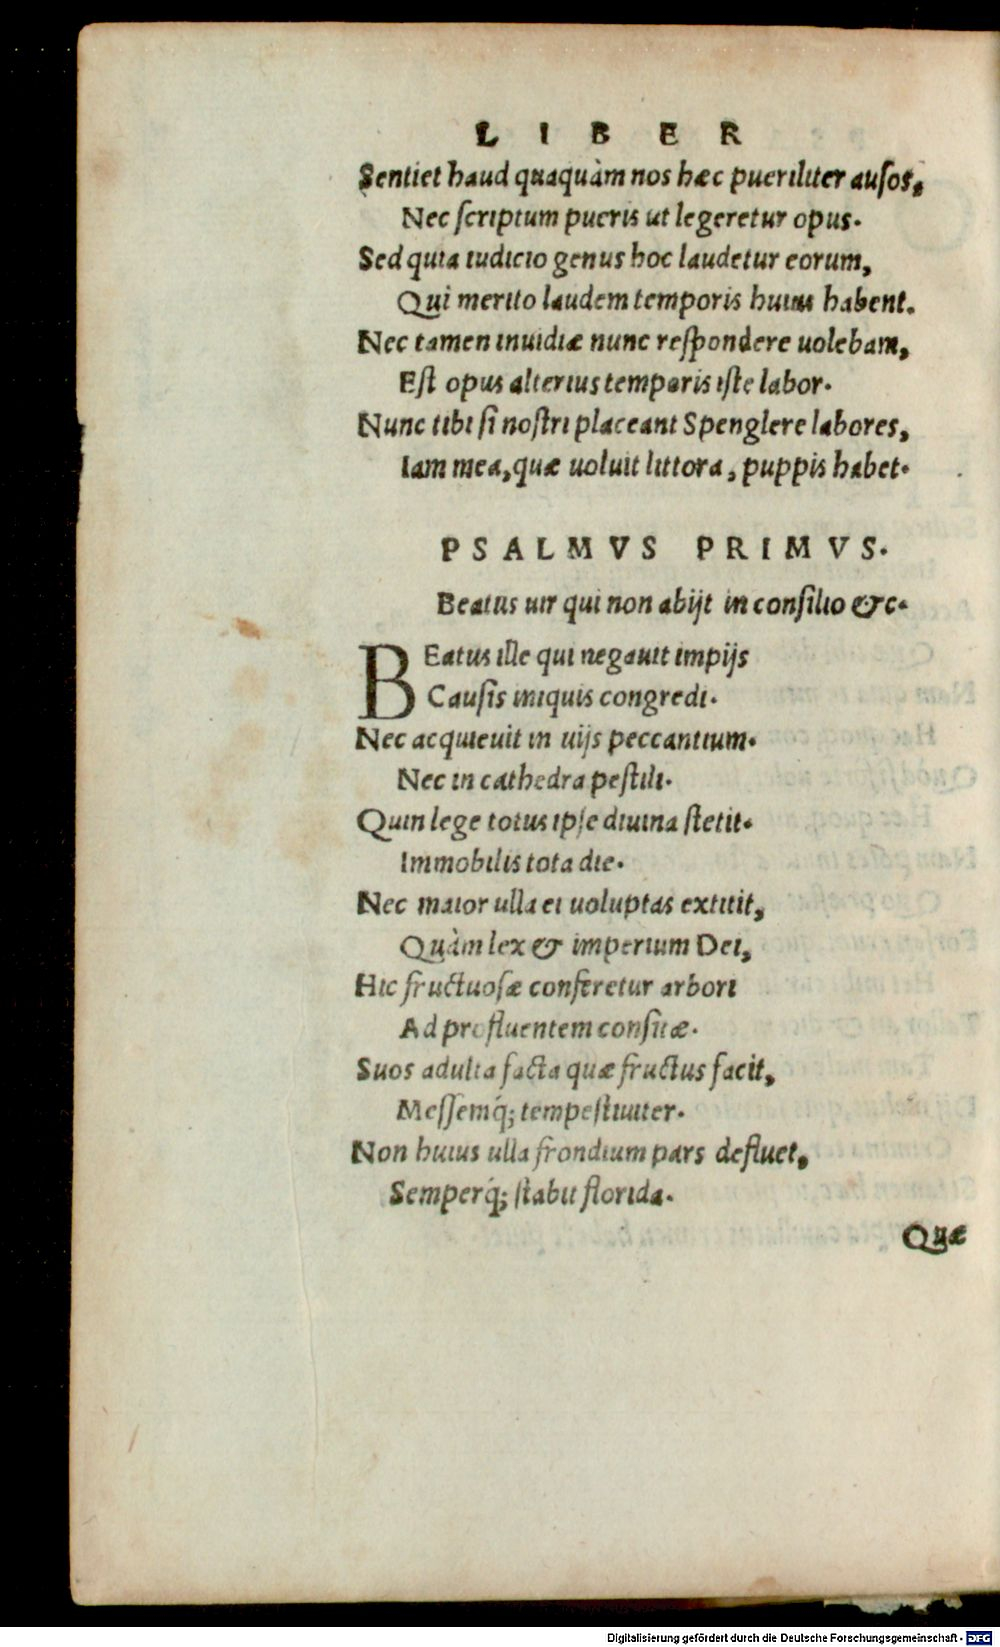 LIBER
Sentiet haud quaquàm nos hæc pueriliter ausos,
Nec scriptum pueris ut legeretur opus.
Sed quia iudicio genus hoc laudetur eorum,
Qui merito laudem temporis huius habent.
Nec tamen inuidiæ nunc respondere uolebam,
Est opus alterius temporis iste labor.
Nunc tibi si nostri placeant Spenglere labores,
Iam mea, quæ uoluit littora, puppis habet.
PSALMVS PRIMVS.
Beatus uir qui non abijt in consilio &c.
BEatus ille qui negauit impijs
Causis iniquis congredi.
Nec acquieuit in uijs peccantium.
Nec in cathedra pestili.
Quin lege totus ipse diuina stetit.
Immobilis tota die.
Nec maior ulla ei uoluptas extitit,
Quàm lex & imperium Dei,
Hic fructuosæ conferetur arbori
Ad profluentem consitæ.
Suos adulta facta quæ fructus facit,
Messemq́; tempestiuiter.
Non huius ulla frondium pars defluet,
Semperq́; stabit florida.
Quæ
Digitalisierung gefördert durch die Deutsche Forschungsgemeinschaft - DFG